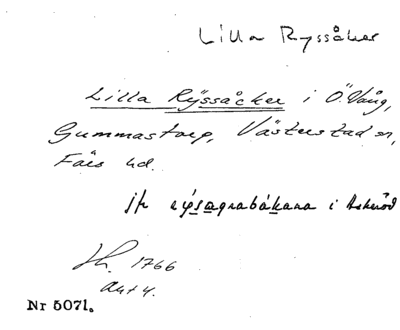 Lilla Ryssåker
Lilla Rÿssacker i Ö. Vång,
Gummastorp, Västerstad sn,
Färs hd.
jfr i Askeröd
1766
akt 4.
Nr 5071.